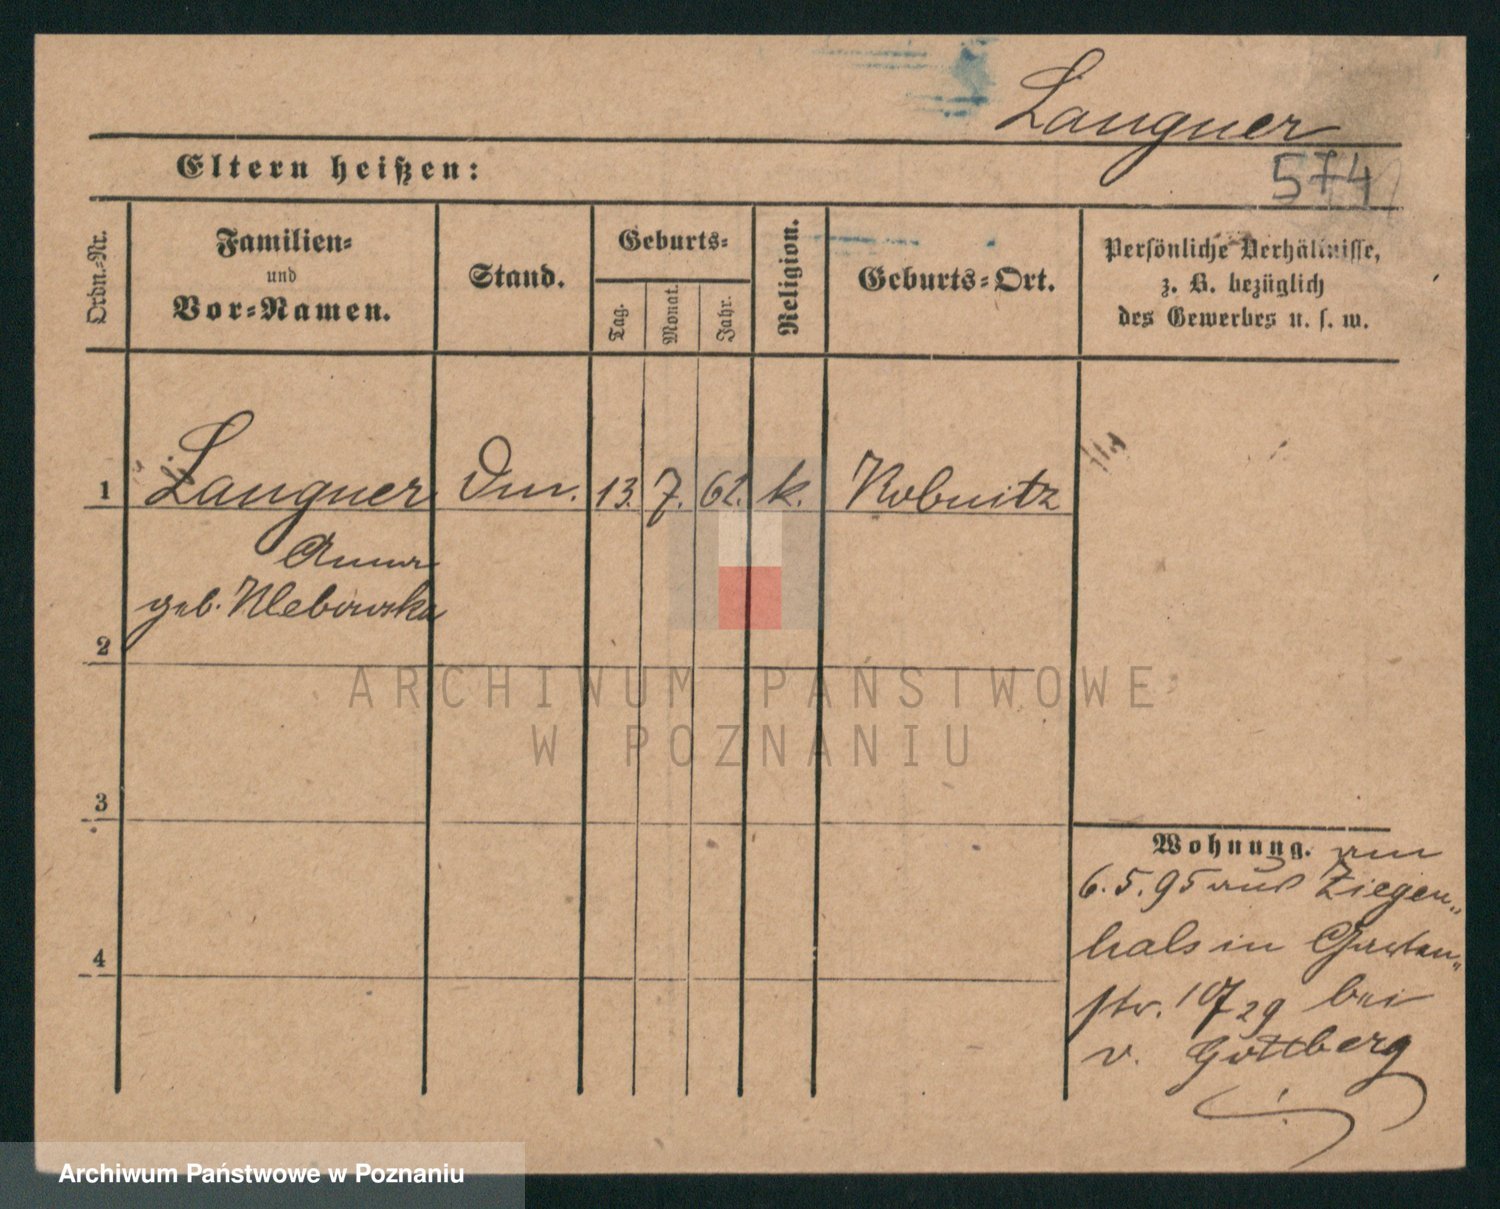 Langner
Eltern heißen:
574
Ordn.-Nr.
Familien-
und
Vor-Namen.
Stand.
Geburts-
Tag.
Monat.
Jahr.
Religion.
Geburts-Ort.
Persönliche Verhältnisse,
z. B. bezüglich
des Gewerbes u. s. w.
1 Langner Dnr. 13. 7. 62. k. Kobnitz
Anna
geb. Klebowska
2
3
4
ARCHIWUM PAŃSTWOWE
W POZNANIU
Wohnung. am
6. 5. 95 aus Ziegen-
hals in Garten-
str. bei
v. Gottberg
Archiwum Państwowe w Poznaniu